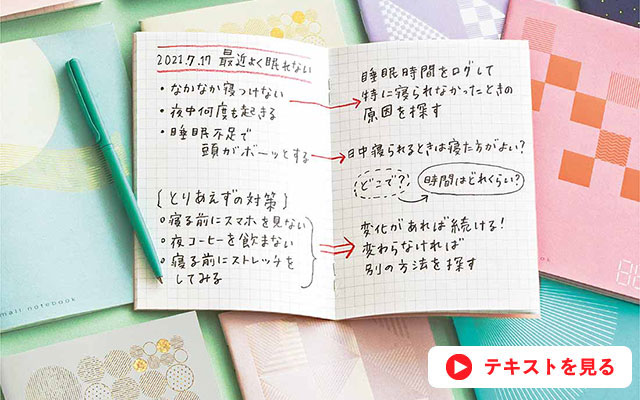 2021.7.17 最近よく眠れない
・なかなか寝つけない
・夜中何度も起きる
・睡眠不足で
頭がボーッとする
{とりあえずの対策}
○寝る前にスマホを見ない
○夜コーヒーを飲まない
○寝る前にストレッチを
してみる
睡眠時間をログして
特に寝られなかったときの
原因を探す
日中寝られるときは寝た方がよい?
どこで?
時間はどれくらい?
変化があれば続ける!
変わらなければ
別の方法を探す
mall notebook
book
テキストを見る